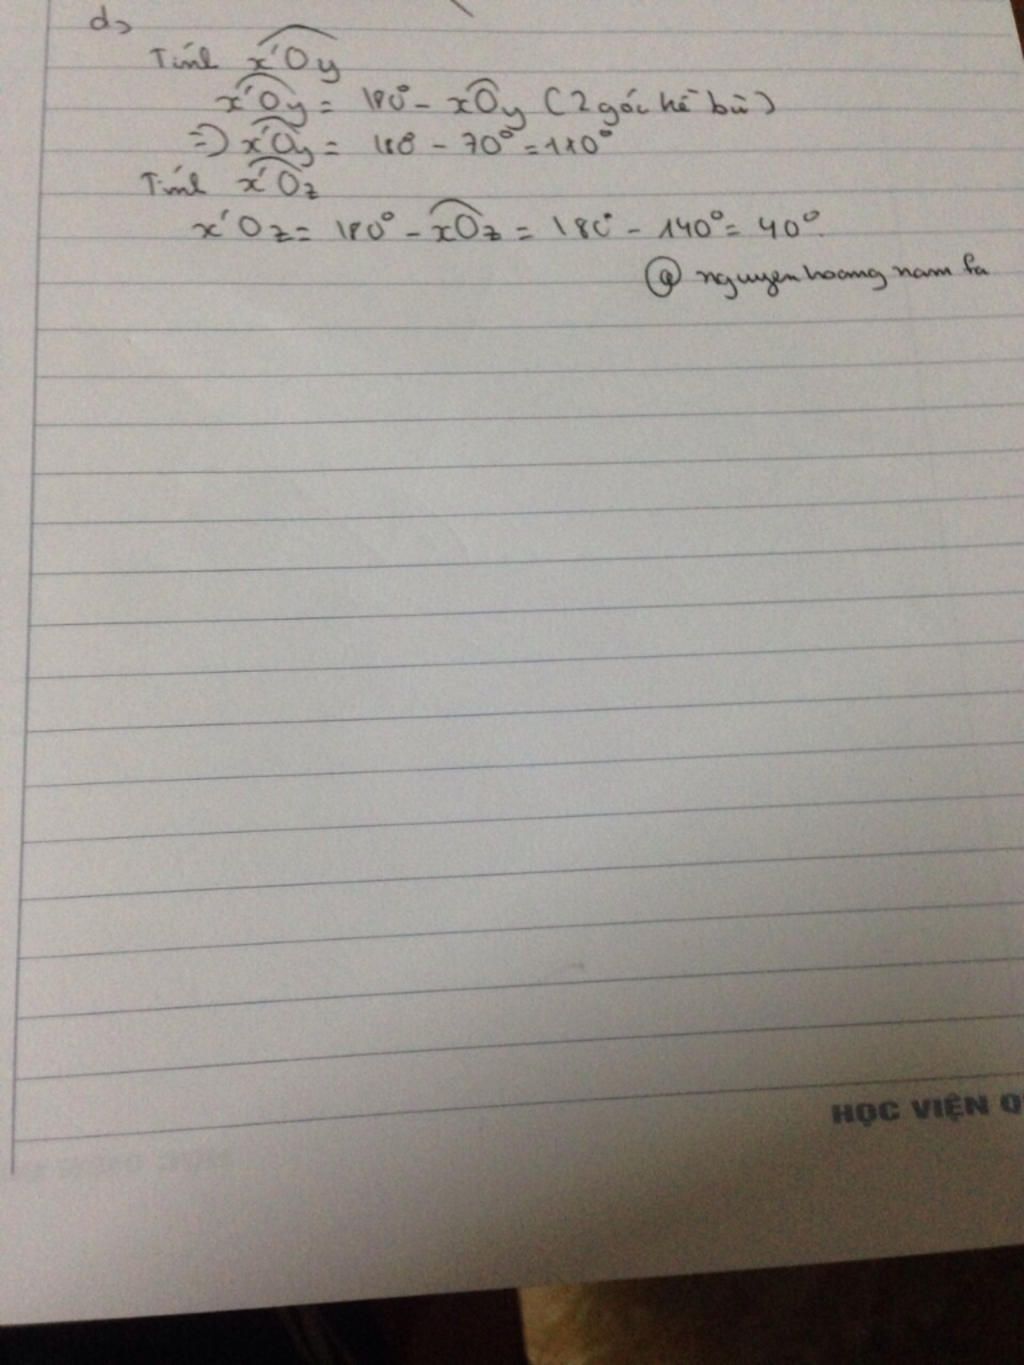 d)
Tính x'Oy
x'Oy = 180° - xOy (2 góc kề bù)
=> x'Oy = 180 - 70° = 110°
Tính x'Oz
x'Oz = 180° - xOz = 180° - 140° = 40°.
@ nguyenhoangnam fa
HỌC VIỆN